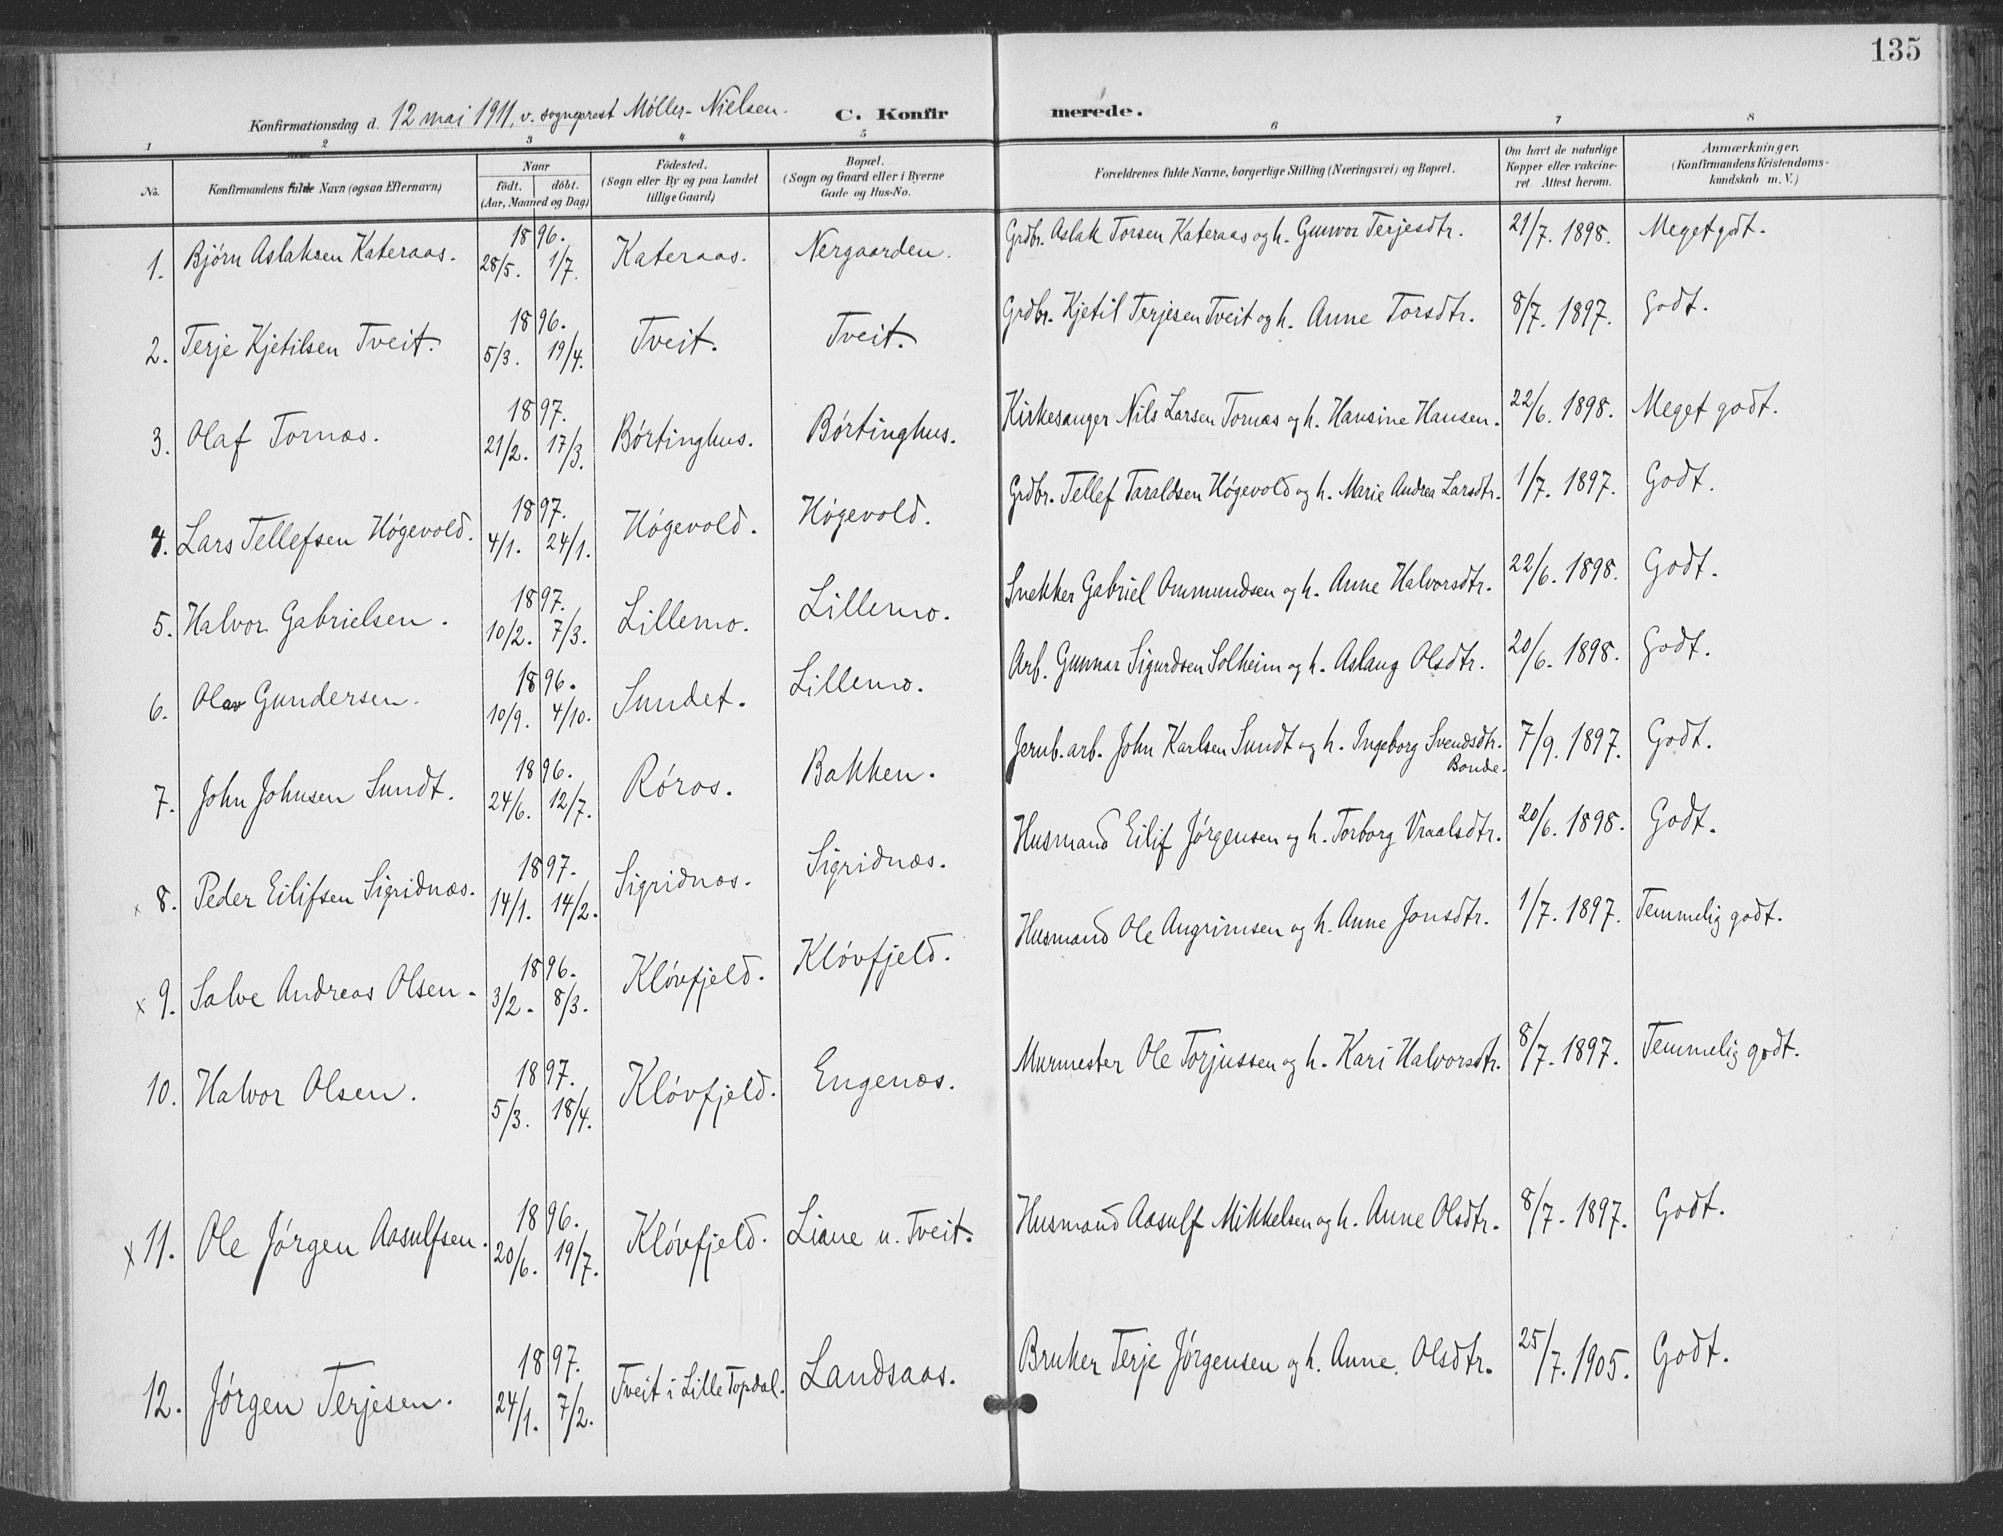 135
Konfirmationsdag d. 12 mai 1911, v. sogneprest Møller-Nielsen. C. Konfirmerede.
1 2 3 4 5 6 7 8
No. Konfirmandens fulde Navn (ogsaa Efternavn) Naar født. døbt. (Aar, Maaned og Dag) Fødested. (Sogn eller By og paa Landet tillige Gaard) Bopæl. (Sogn og Gaard eller i Byerne Gade og Hus-No. Forældrenes fulde Navne, borgerlige Stilling (Næringsvei) og Bopæl. Om havt de naturlige Kopper eller vakcineret. Attest herom. Anmærkninger. (Konfirmandens Kristendomskundskab m. V.)
1. Bjørn Aslaksen Kateraas. 1896. 28/5. 1/7. Kateraas. Nergaarden. Grdbr. Aslak Torsen Kateraas og h. Gunvor Terjesdtr. 21/7. 1898. Meget godt.
2. Terje Kjetilsen Tveit. 1896. 5/3. 19/4. Tveit. Tveit. Grdbr. Kjetil Terjesen Tveit og h. Anne Torsdtr. 8/7. 1897. Godt.
3. Olaf Tornæs. 1897. 21/2. 17/3. Børtinghus. Børtinghus. Kirkesanger Nils Larsen Tornæs og h. Hansine Hansen. 22/6. 1898. Meget godt.
4. Lars Tellefsen Høgevold. 1897. 4/1. 24/1. Høgevold. Høgevold. Grdbr. Tellef Taraldsen Høgevold og h. Marie Andrea Larsdtr. 1/7. 1897. Godt.
5. Halvor Gabrielsen. 1897. 10/2. 7/3. Lillemo. Lillemo. Snekker Gabriel Ommundsen og h. Anne Halvorsdtr. 22/6. 1898. Godt.
6. Olav Gundersen. 1896. 10/9. 4/10. Sundet. Lillemo. Arb. Gunnar Sigurdsen Solheim og h. Aslaug Olsdtr. 20/6. 1898. Godt.
7. John Johnsen Sundt. 1896. 24/6. 12/7. Røros. Bakken. Jernb. arb. John Karlsen Sundt og h. Ingeborg Svendsdtr. Bonde. 7/9. 1897. Godt.
x 8. Peder Eilifsen Sigridnæs. 1897. 14/1. 14/2. Sigridnæs. Sigridnæs. Husmand Eilif Jørgensen og h. Torborg Vraalsdtr. 20/6. 1898. Godt.
x 9. Salve Andreas Olsen. 1896. 3/2. 8/3. Kløvfjeld. Kløvfjeld. Husmand Ole Angrimsen og h. Anne Jonsdtr. 1/7. 1897. Temmelig godt.
10. Halvor Olsen. 1897. 5/3. 18/4. Kløvfjeld. Engenæs. Murmester Ole Torjussen og h. Kari Halvorsdtr. 8/7. 1897. Temmelig godt.
x 11. Ole Jørgen Aasulfsen. 1896. 20/6. 19/7. Kløvfjeld. Liane u. Tveit. Husmand Aasulf Mikkelsen og h. Anne Olsdtr. 8/7. 1897. Godt.
12. Jørgen Terjesen. 1897. 24/1. 7/2. Tveit i Lille Topdal. Landsaas. Bruker Terje Jørgensen og h. Anne Olsdtr. 25/7. 1905. Godt.